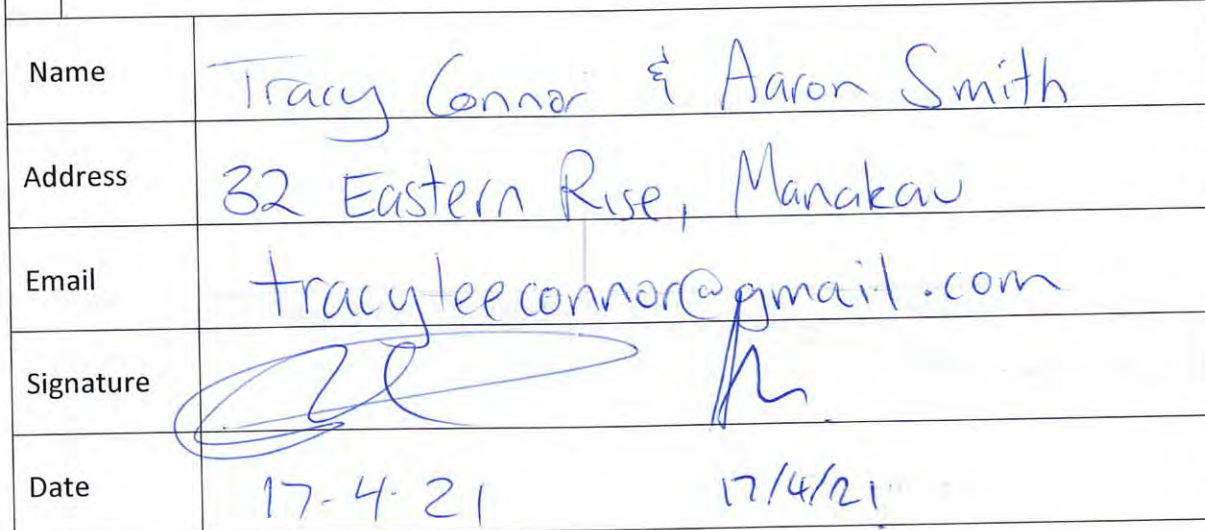 Name Tracy Connor & Aaron Smith
Address 32 Eastern Rise, Manakau
Email tracyleeconnor@gmail.com
Signature
Date 17-4-21 17/4/21